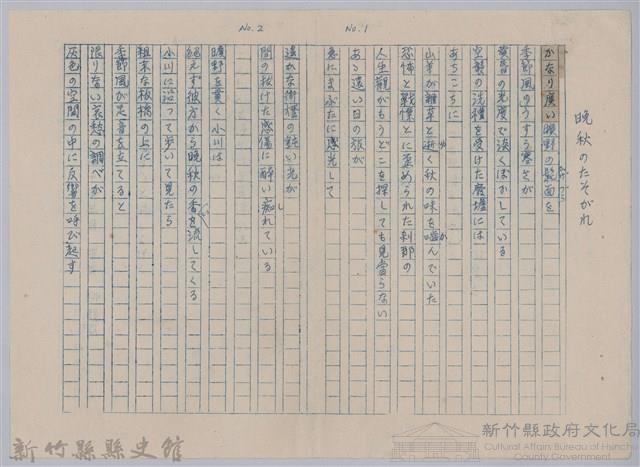 No. 1
晩秋のたそがれ
かなり廣い曠野の髭面を
季節風のうすら寒さが
黄昏の光度で淡くぼかしている
空襲の洗禮を受けた廃墟には
あちこちに
山羊が雜草と逝く秋の味を嚙んでいた
恐怖と戰慄とに歪められた刹那の
人生觀がもうどこを探しても見當らない
ある遠い日の旅が
急にまぶたに感光して
No. 2
遠かな街燈の鈍い光が
間の抜けた感傷に酔い痴れている
曠野を貫く小川は
絶えず彼方から晩秋の香を流してくる
小川に沿って歩いて見たら
粗末な板橋の上に
季節風が足音を立てると
限りない哀愁の調べが
灰色の空間の中に反響を呼び起す
新竹縣縣史館
新竹縣政府文化局
Cultural Affairs Bureau of Hsinchu County Government